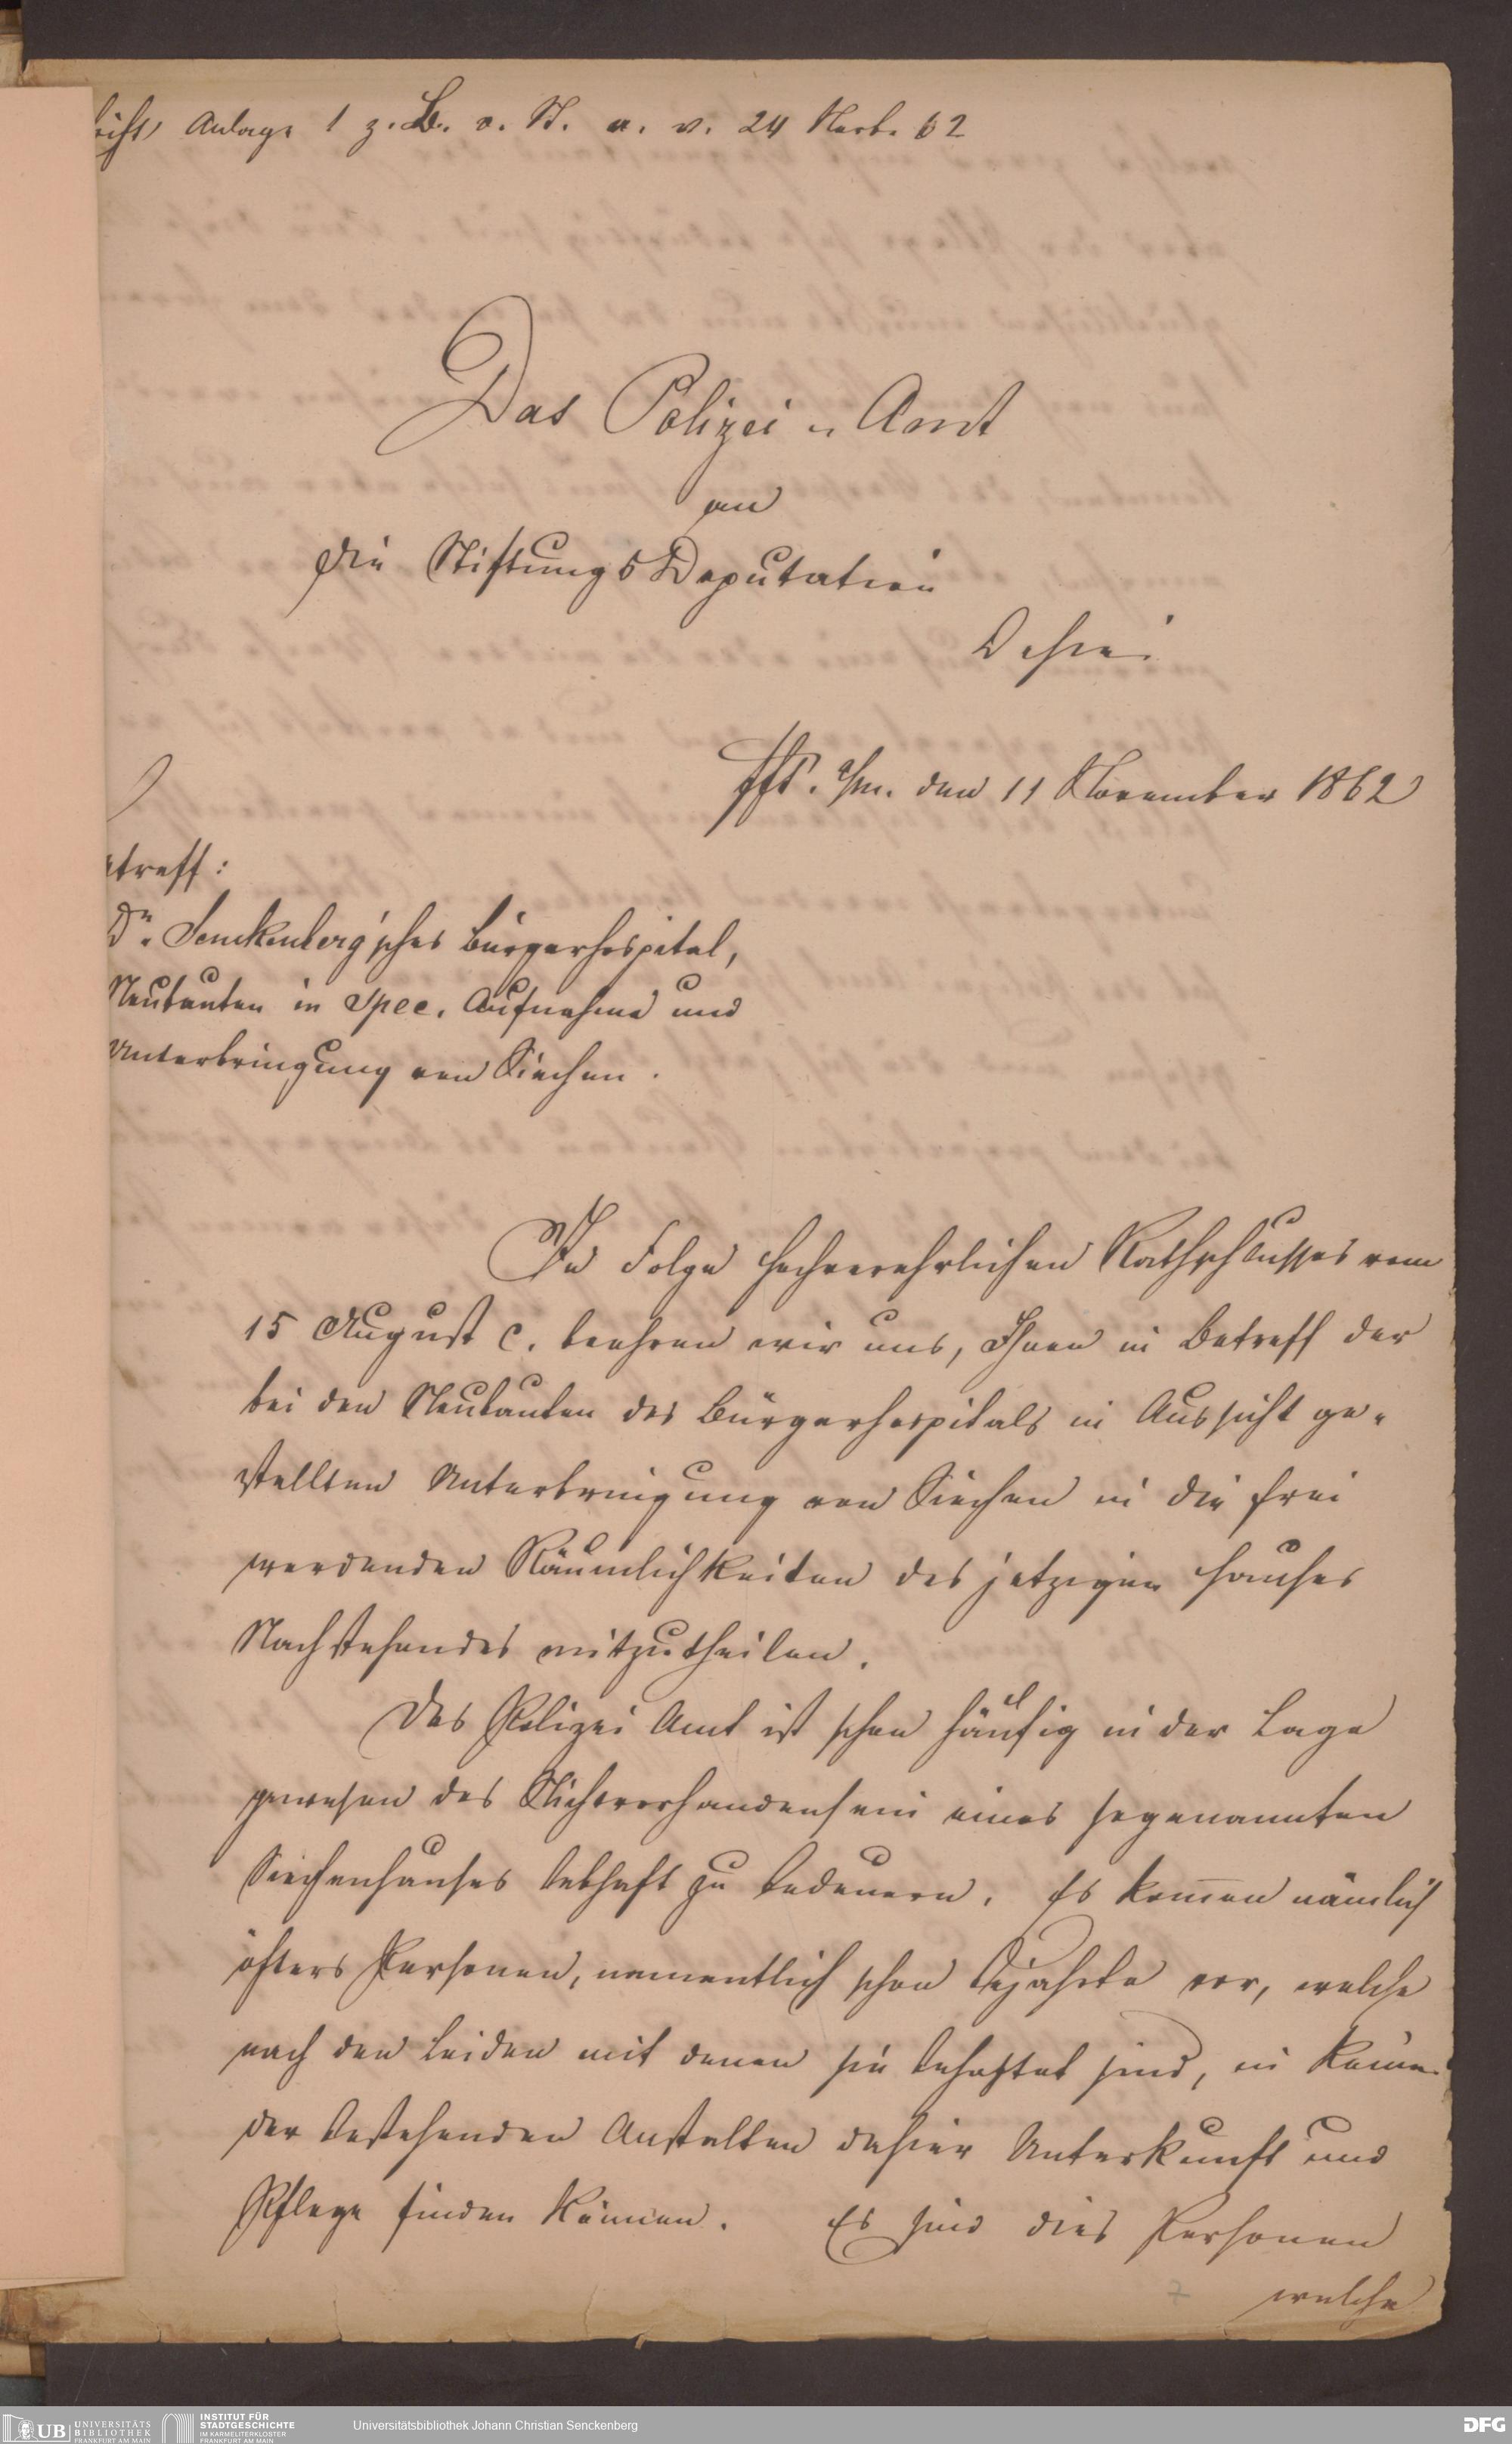 Anlage 1 z. B. v. St. A. v. 24 Novb. 62
Das Polizei-Amt
an
die Stiftungs Deputation
Dahier
Fft. a/m. den 11 November 1862
treff:
Dr. Senckenberg'sches Bürgerhospital,
Neubauten in spec. Aufnahme und
Unterbringung von Siechen.
In Folge hochverehrlichen Rathschlusses vom
15 August c. beehren wir uns, Ihnen in Betreff der
bei den Neubauten des Bürgerhospitals in Aussicht ge-
stellten Unterbringung von Siechen in die frei
werdenden Räumlichkeiten des jetzigen Hauses
Nachstehendes mitzutheilen.
Das Polizei Amt ist schon häufig in der Lage
gewesen das Nichtvorhandensein eines sogenannten
Siechenhauses lebhaft zu bedauern. Es kom̅en nämlich
öfters Personen, namentlich schon bejahrte vor, welche
nach den Leiden mit denen sie behaftet sind, in keine
der bestehenden Anstalten dahier Unterkunft und
Pflege finden können. Es sind dies Personen
welche
7
UB UNIVERSITÄTS
BIBLIOTHEK
FRANKFURT AM MAIN
INSTITUT FÜR
STADTGESCHICHTE
IM KARMELITERKLOSTER
FRANKFURT AM MAIN
Universitätsbibliothek Johann Christian Senckenberg
DFG